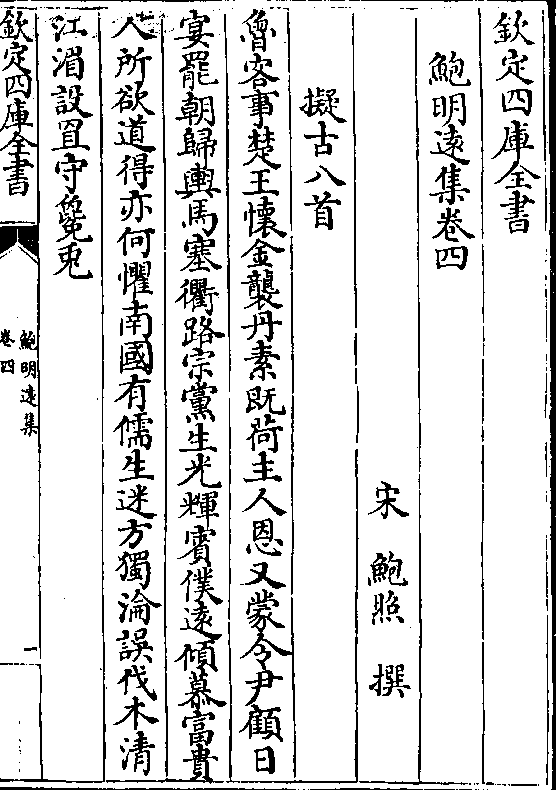 欽定四庫全書
鮑明遠集卷四
宋 鮑照 撰
擬古八首
魯客事楚王懷金襲丹素既荷主人恩又蒙令尹顧日
宴罷朝歸輿馬塞衢路宗黨生光輝賓僕遠傾慕富貴
人所欲道得亦何懼南國有儒生迷方獨淪誤伐木清
江湄設罝守毚兎
欽定四庫全書
鮑明遠集
卷四
一